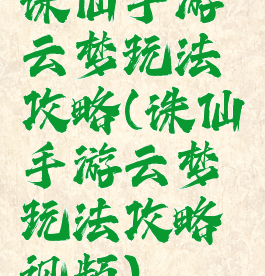 诛仙手游
云梦玩法
攻略(诛仙
手游云梦
玩法攻略
视频)